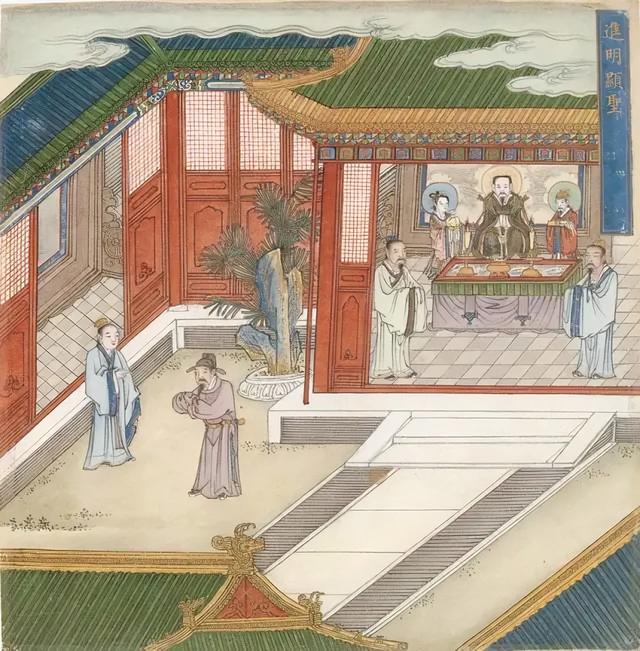 進明顯聖